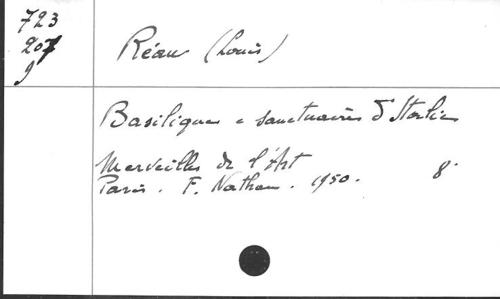 723
207
9
Réau (Louis)
Basiliques e sanctuaires d'Italie
Merveilles de l'Art
Paris. F. Nathan. 1950. 8°